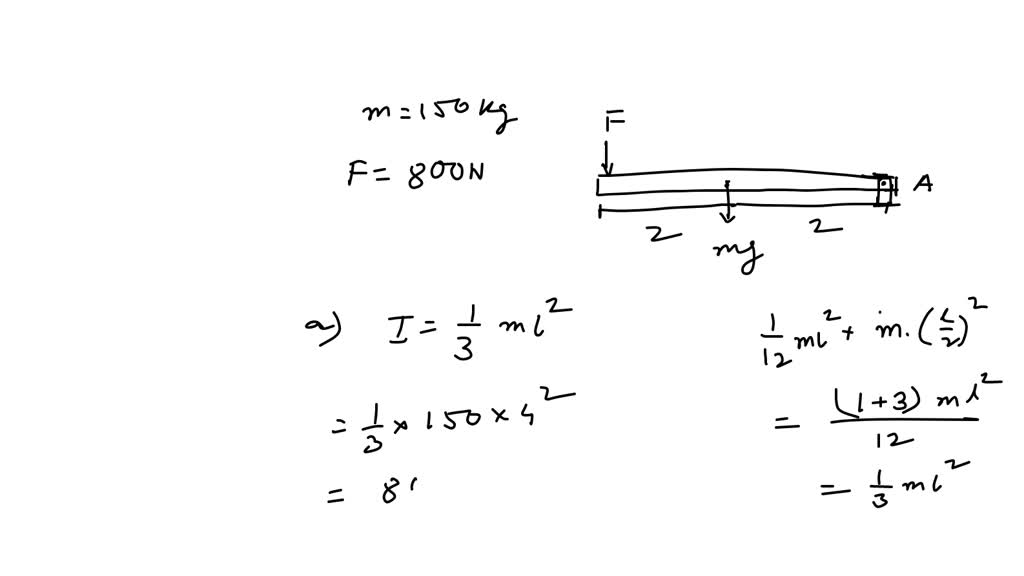 m = 150 kg
F = 800N
F
A
2
2
mg
a) I = 1/3 ml²
= 1/3 × 150 × 4²
= 8
1/12 ml² + m.(L/2)²
= (1+3) ml² / 12
= 1/3 ml²